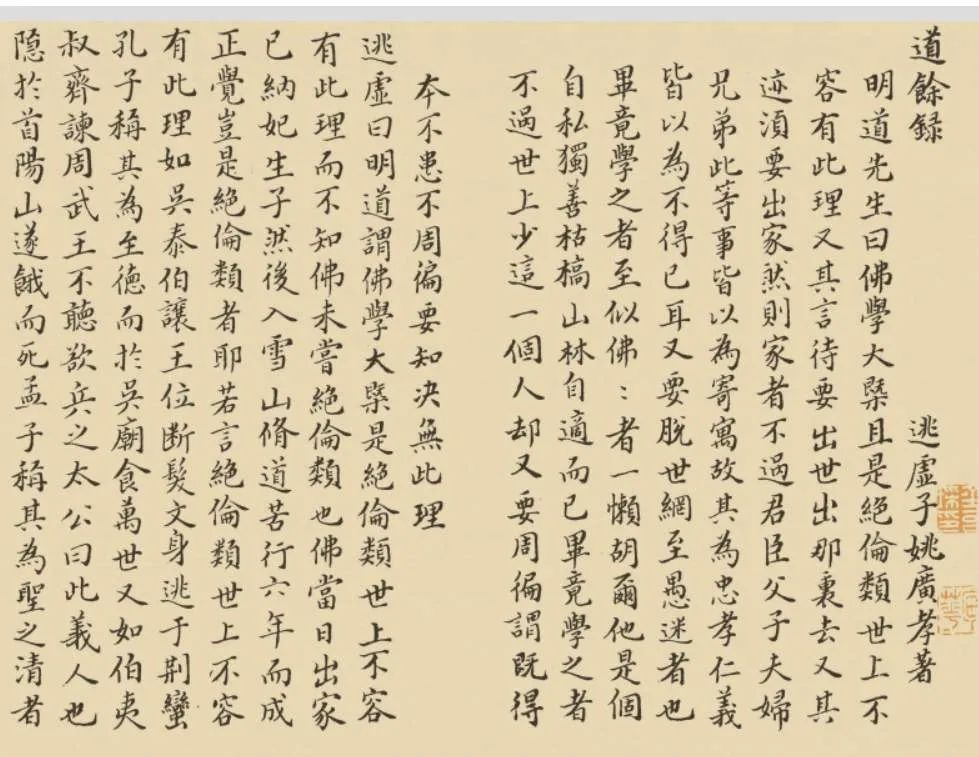 道餘録　逃虛子姚廣孝著
明道先生曰佛學大槩且是絕倫類世上不
容有此理又其言待要出世出那裏去又其
迹須要出家然則家者不過君臣父子夫婦
兄弟此等事皆以為寄寓故其為忠孝仁義
皆以為不得已耳又要脫世網至愚迷者也
畢竟學之者至似佛〻者一懶胡爾他是個
自私獨善枯槁山林自適而已畢竟學之者
不過世上少這一個人却又要周徧謂既得
本不患不周徧要知決無此理
逃虛曰明道謂佛學大槩是絕倫類世上不容
有此理而不知佛未嘗絕倫類也佛當日出家
已納妃生子然後入雪山脩道苦行六年而成
正覺豈是絕倫類者耶若言絕倫類世上不容
有此理如吳泰伯讓王位斷髮文身逃于荆蠻
孔子稱其為至德而於吳廟食萬世又如伯夷
叔齊諫周武王不聽欲兵之太公曰此義人也
隱於首陽山遂餓而死孟子稱其為聖之清者